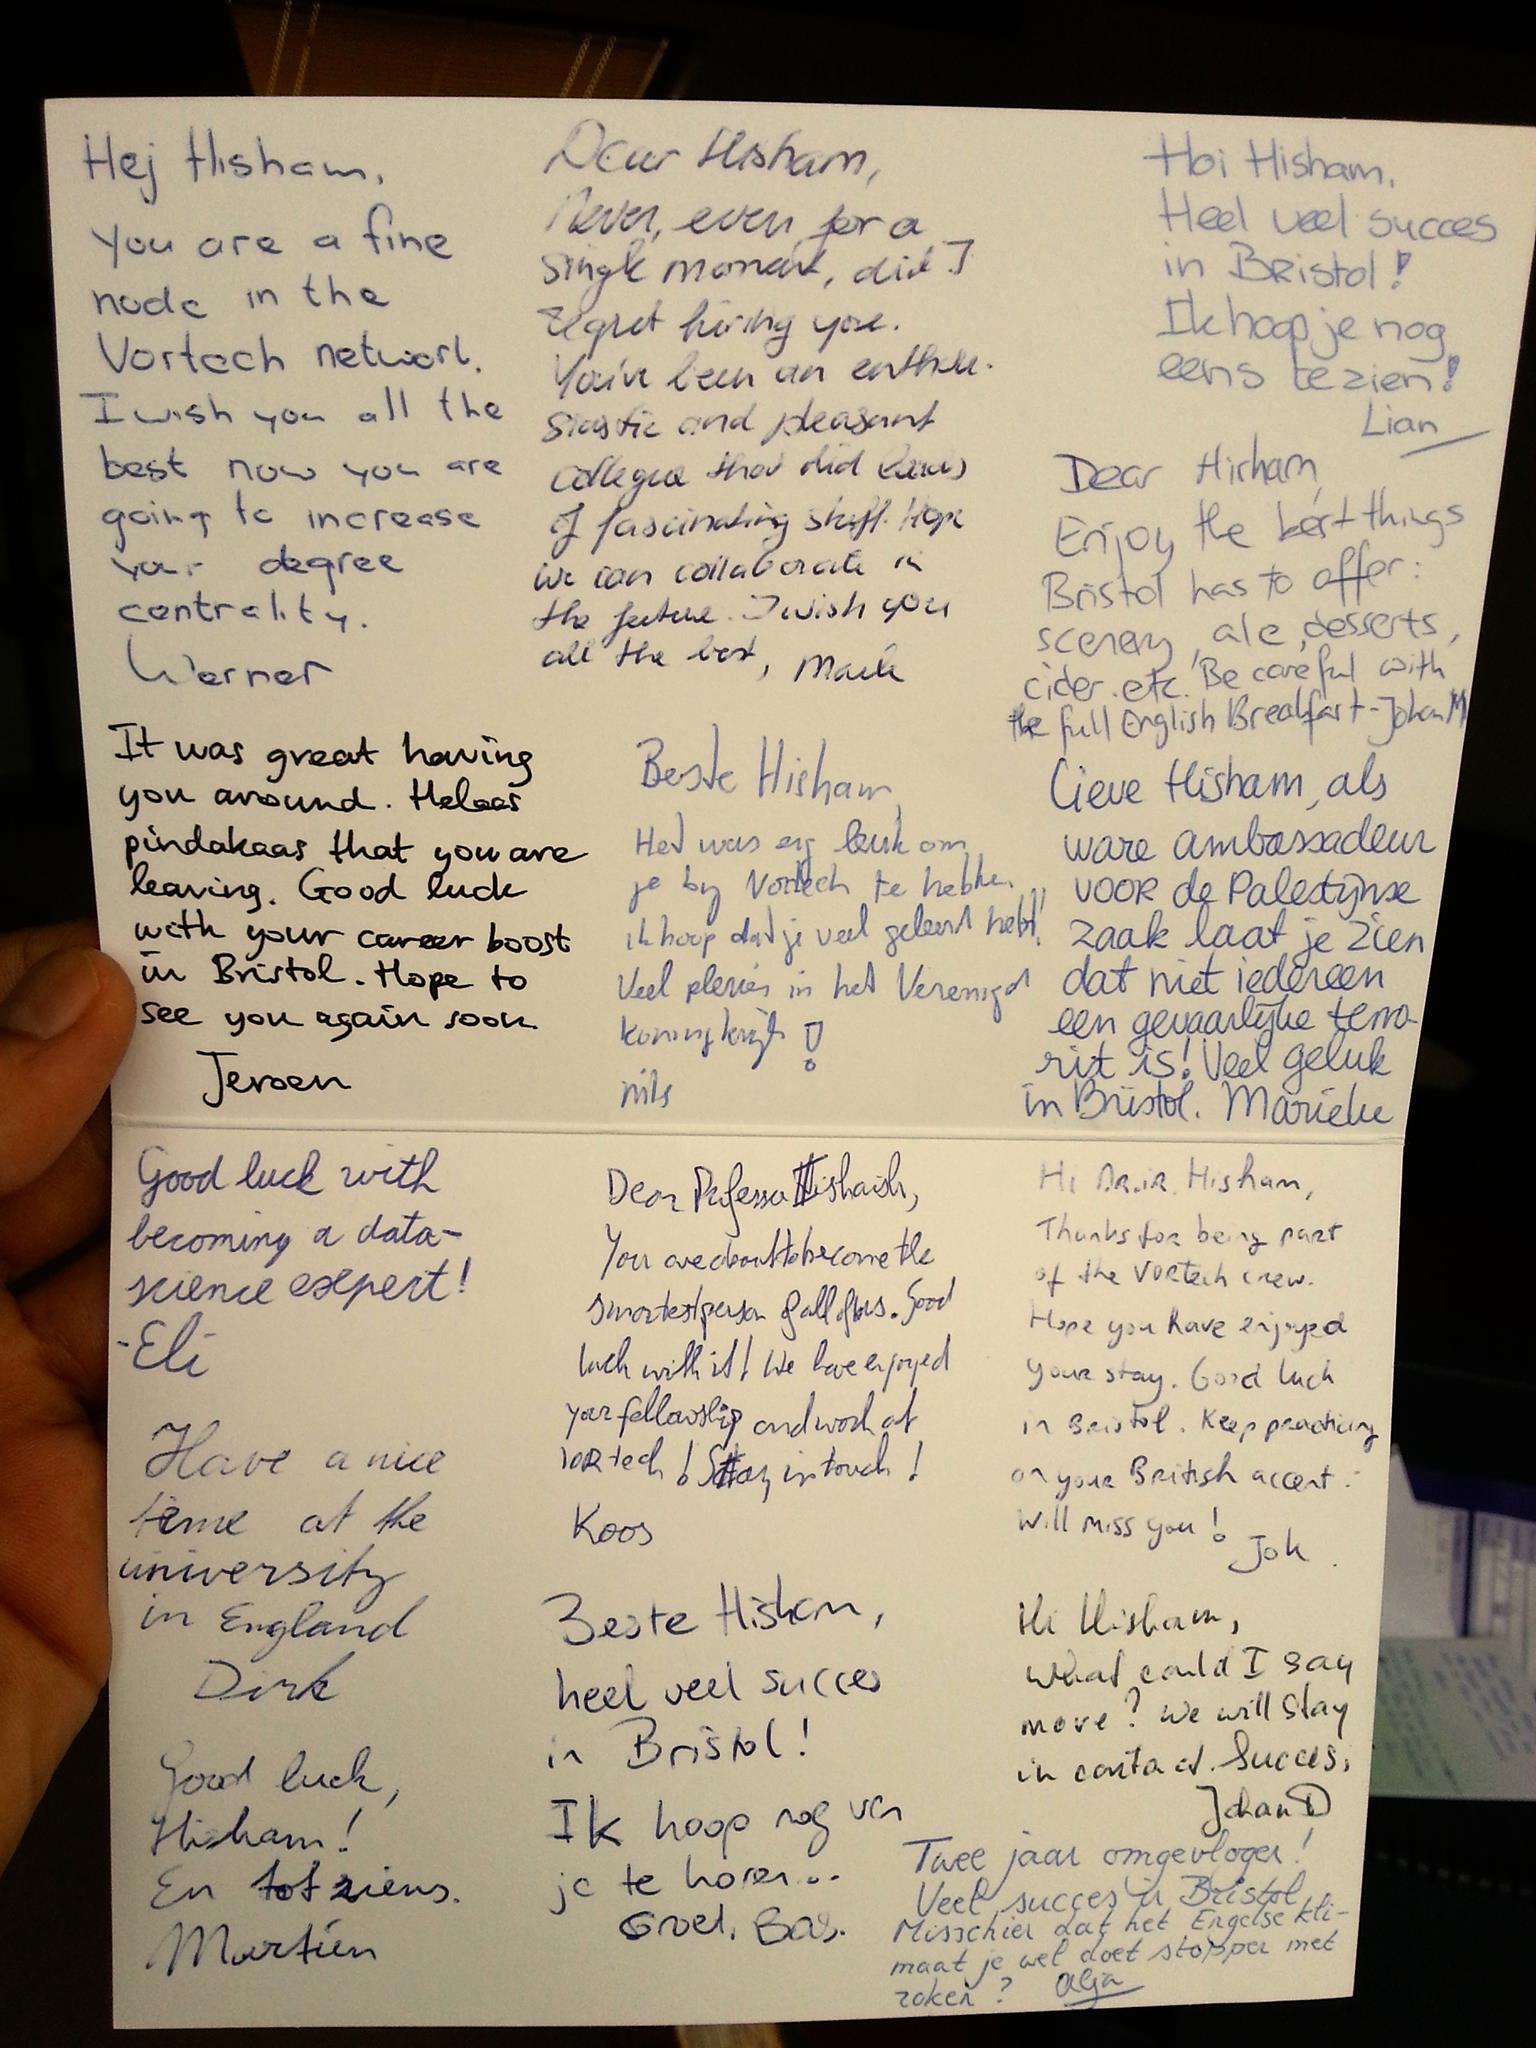 Hej Hisham,
you are a fine
node in the
Vortech network.
I wish you all the
best now you are
going to increase
your degree
centrality.
Werner
It was great having
you around. Helaas
pindakaas that you are
leaving. Good luck
with your career boost
in Bristol. Hope to
see you again soon
Jeroen
Dear Hisham,
Never, even for a
single moment, did I
regret hiring you.
You've been an enthu-
siastic and pleasant
collegue that did
of fascinating stuff. Hope
we can collaborate in
the future. I wish you
all the best, Mark
Beste Hisham,
Het was erg leuk om
je bij Vortech te hebben
ik hoop dat je veel geleerd hebt!
Veel plezier in het Verenigd
koninkrijk!
Nils
Hoi Hisham,
Heel veel succes
in Bristol!
Ik hoop je nog
eens te zien!
Lian
Dear Hisham,
Enjoy the best things
Bristol has to offer:
scenery, ale, desserts,
cider. etc. Be careful with
the full English Breakfast - Johan M
Lieve Hisham, als
ware ambassadeur
voor de Palestijnse
zaak laat je zien
dat niet iedereen
een gevaarlijke terro-
rist is! Veel geluk
in Bristol. Marieke
Good luck with
becoming a data-
science expert!
-Eli
Have a nice
time at the
university
in England
Dirk
Good luck,
Hisham!
En tot ziens.
Martien
Dear Professor Hishaish,
You are about to become the
smartest person of all of us. Good
luck with it! We have enjoyed
your fellowship and work at
VORtech! Stay in touch!
Koos
Beste Hisham,
heel veel succes
in Bristol!
Ik hoop nog van
je te horen...
Groet, Bas.
Hi Hisham,
Thanks for being part
of the VORtech crew.
Hope you have enjoyed
your stay. Good luck
in Bristol. Keep practicing
on your British accent.
Will miss you!
Jok
Hi Hisham,
What could I say
more? We will stay
in contact. Succes,
Johan D
Twee jaar omgevlogen!
Veel succes in Bristol
Misschien dat het Engelse kli-
maat je wel doet stoppen met
roken?